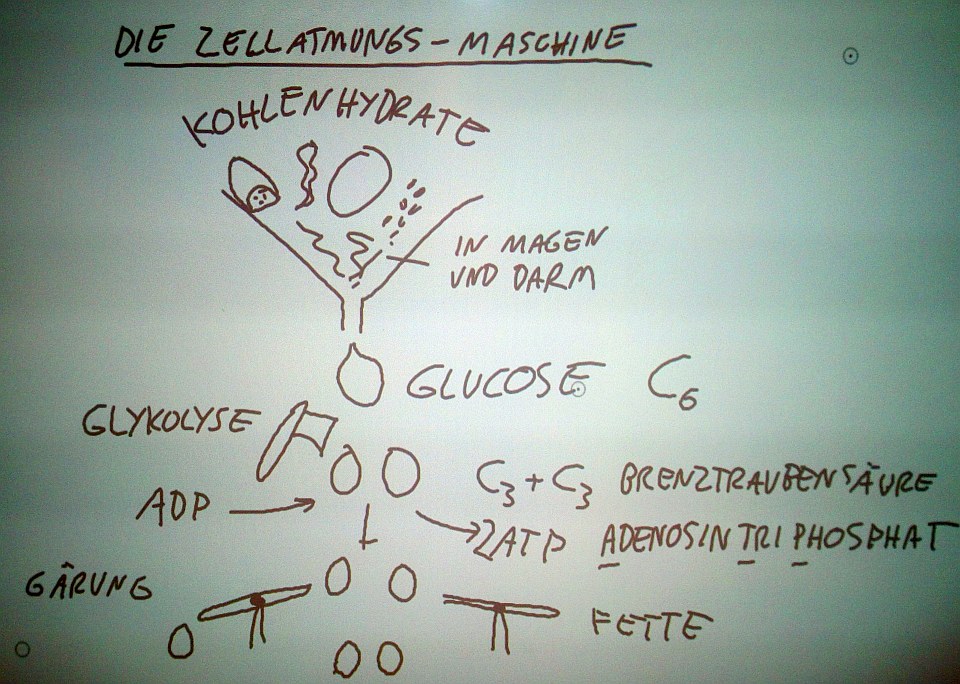 DIE ZELLATMUNGS-MASCHINE
KOHLENHYDRATE
IN MAGEN
UND DARM
GLUCOSE C6
GLYKOLYSE
C3 + C3 BRENZTRAUBENSÄURE
ADP
2ATP ADENOSINTRIPHOSPHAT
GÄRUNG
FETTE